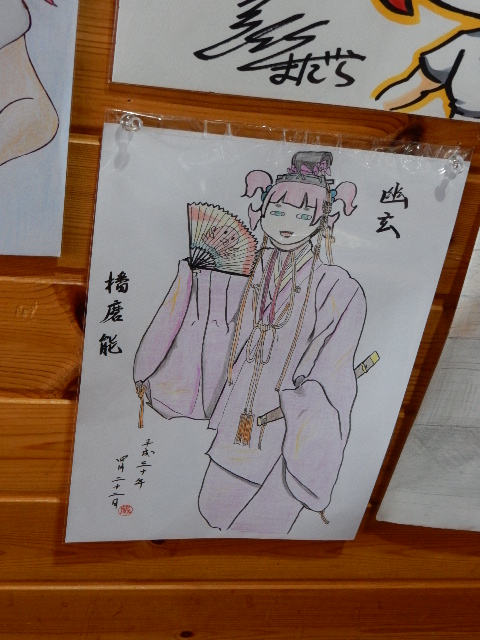 まだら
幽玄
播磨能
平成三十年
四月二十二日